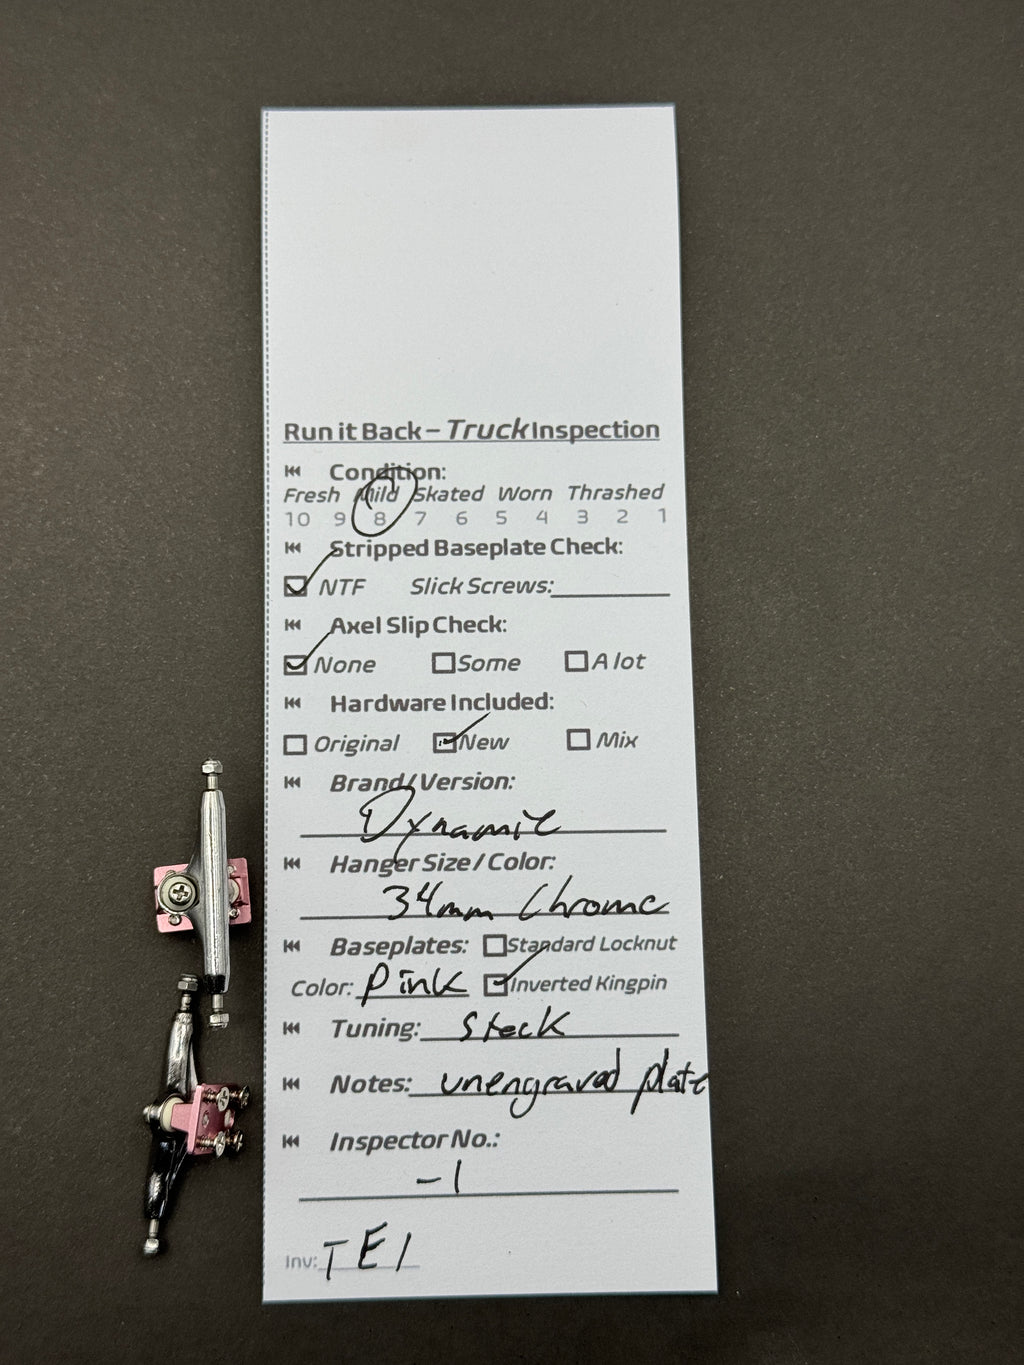 Run it Back – Truck Inspection
Condition:
Fresh Mild Skated Worn Thrashed
10 9 8 7 6 5 4 3 2 1
Stripped Baseplate Check:
NTF Slick Screws:
Axel Slip Check:
None Some A lot
Hardware Included:
Original New Mix
Brand/Version:
Dynamic
Hanger Size / Color:
34mm Chrome
Baseplates: Standard Locknut
Color: Pink Inverted Kingpin
Tuning: Stock
Notes: unengraved plate
Inspector No.:
-1
Inv: TE1